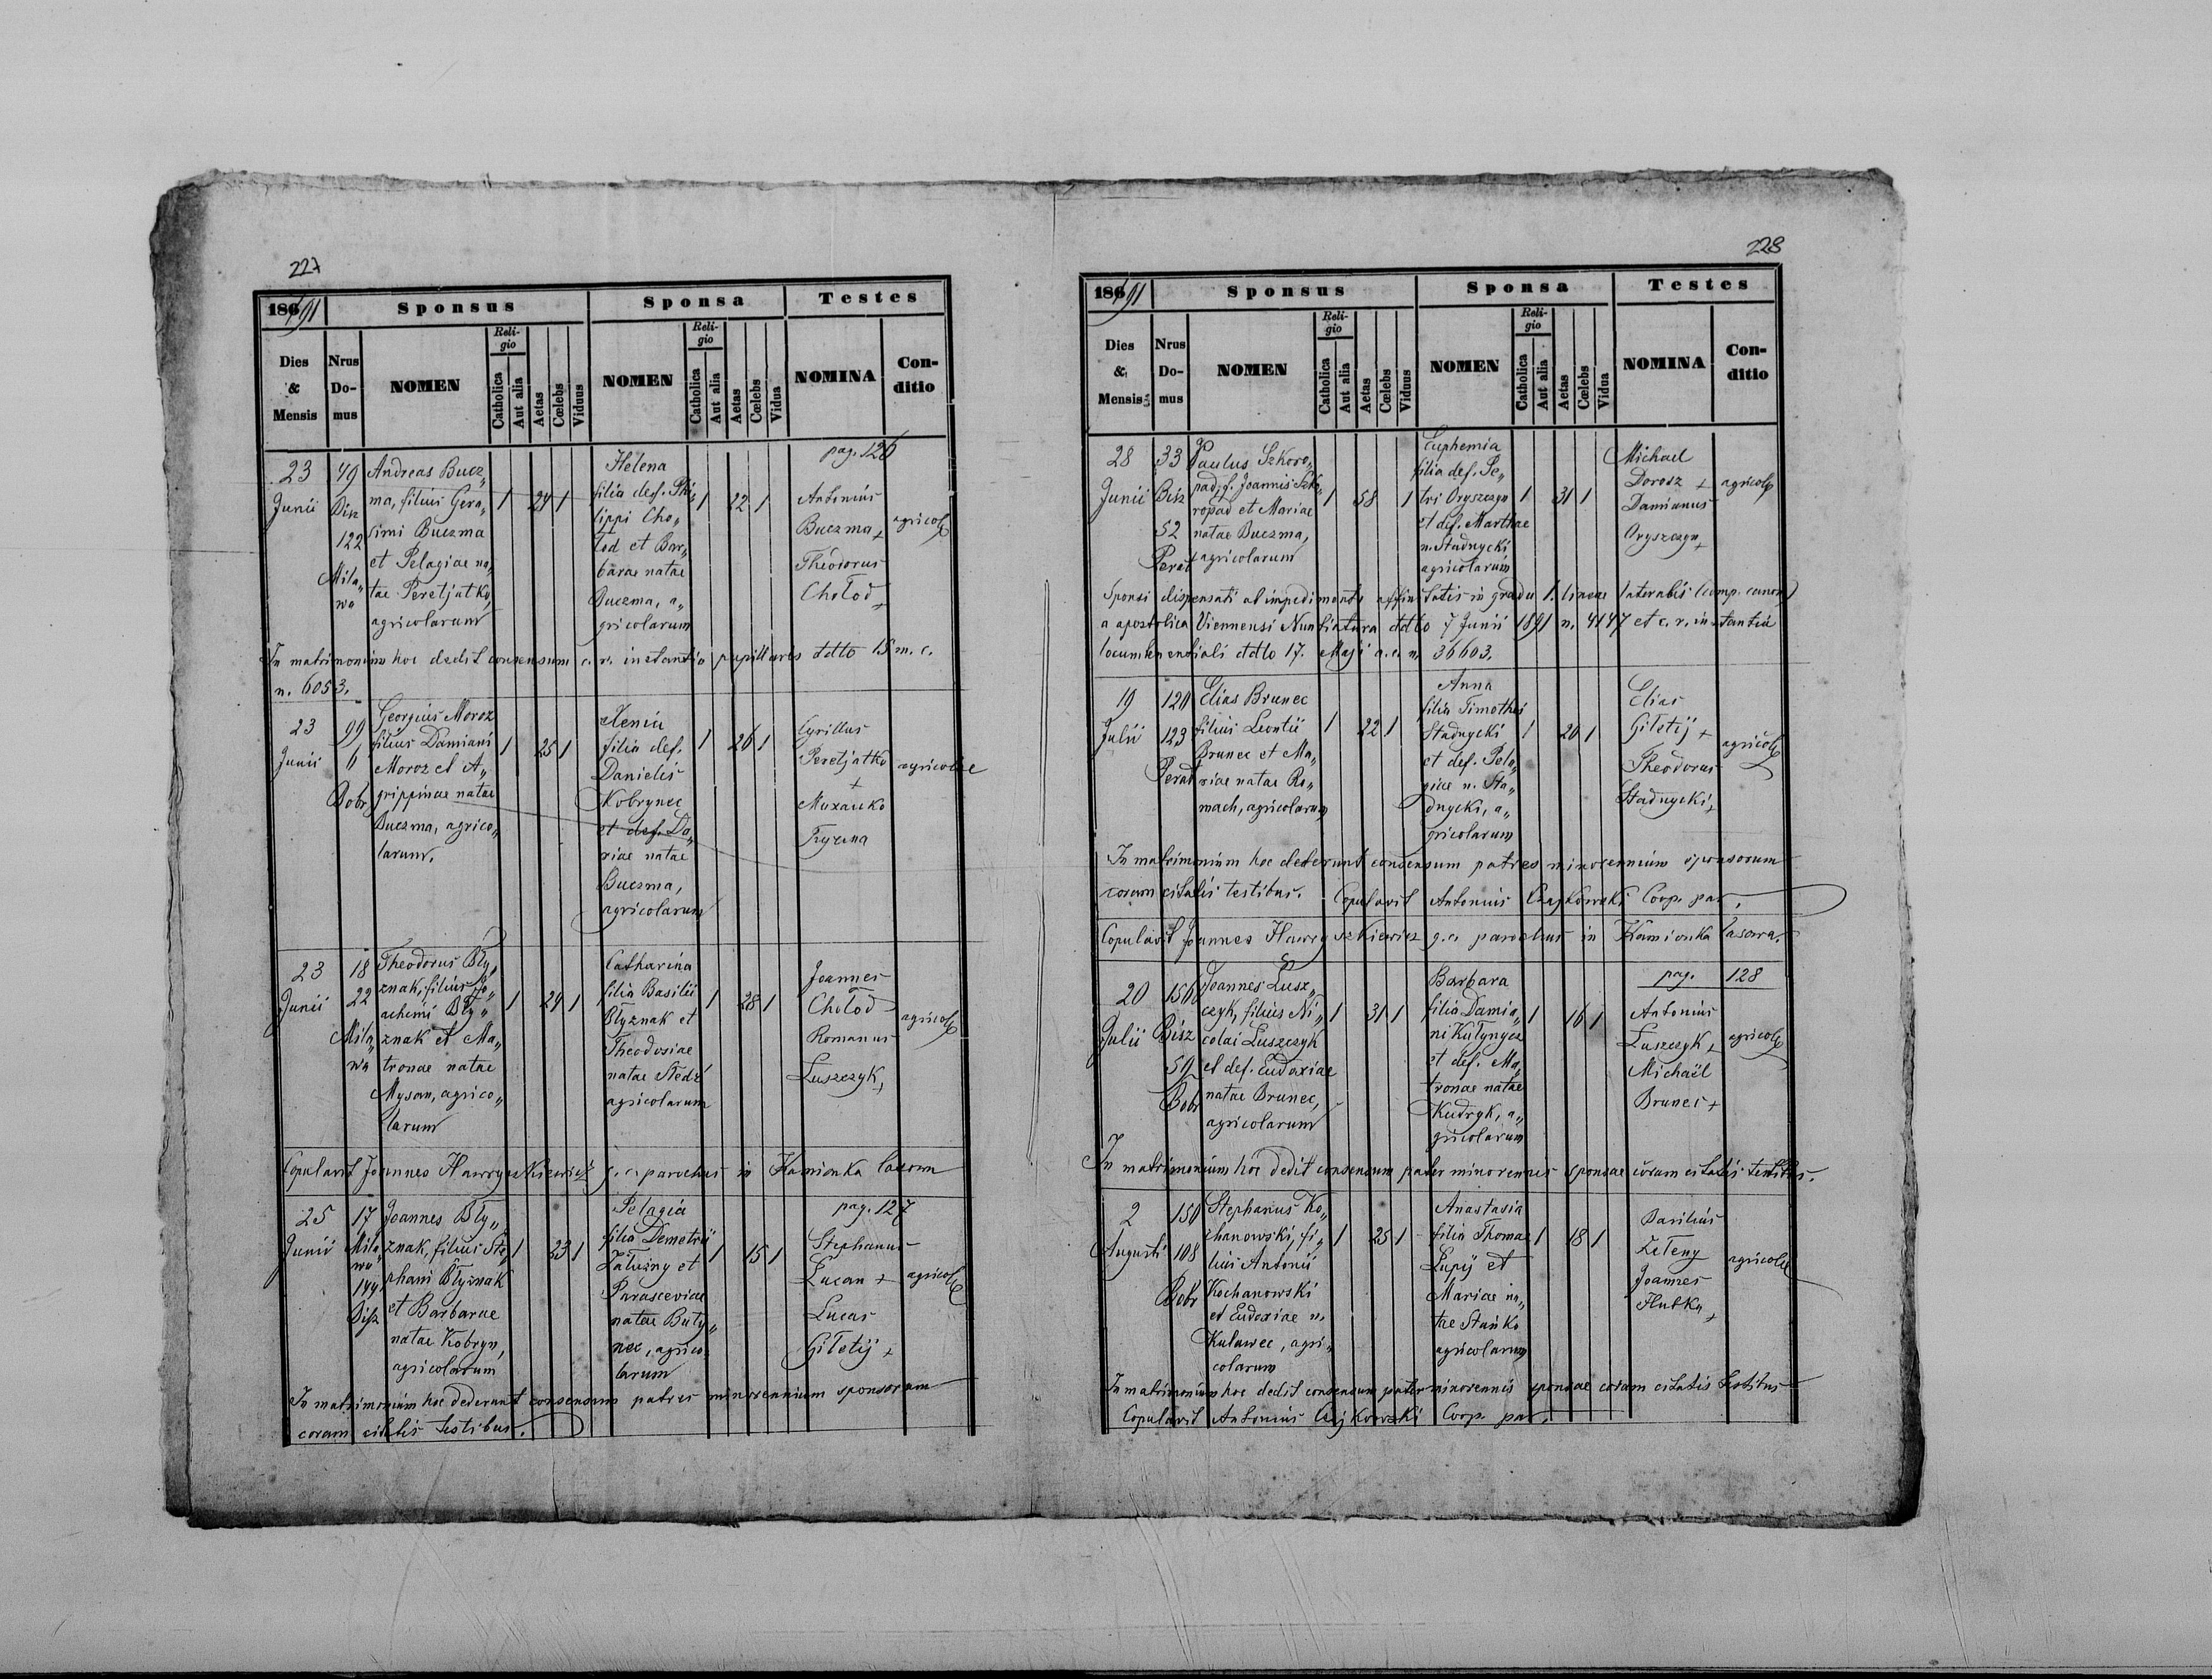 227
1891 Sponsus Sponsa Testes
Dies & Mensis Nrus Domus NOMEN Religio Catholica Aut alia Aetas Cœlebs Viduus NOMEN Religio Catholica Aut alia Aetas Cœlebs Vidua NOMINA Conditio
pag. 126
23 Junii
49 Bisz 122 Mila„ wa
Andreas Bucz„
ma, filius Gera„
simi Buczma
et Pelagiae na„
tae Peretjatko,
agricolarum
1 24 1
Helena
filia def. Phi„
lippi Cho„
łod et Bar„
barae natae
Buczma, a„
gricolarum
1 22 1
Antonius
Buczma +
Theodorus
Chołod +
agricolae
In matrimonium hoc dedit consensum c. r. instantia pupillaris ddto 15 m. c.
n. 6053.
23 Junii
99 6 Bobr
Georgius Moroz
filius Damiani
Moroz et A„
grippinae natae
Buczma, agrico„
larum.
1 25 1
Xenia
filia def.
Danielis
Kobrynec
et def. Da„
riae natae
Buczma,
agricolarum
1 26 1
Cyrillus
Peretjatko
+
agricolae
23 Junii
18 22 Mila„ wa
Theodorus Bły„
znak, filius Jo„
achimi Bły„
znak et Ma„
tronae natae
Mysan, agrico„
larum
1 24 1
Catharina
filia Basilii
Błyznak et
Theodosiae
natae Śledź
agricolarum
1 28 1
Joannes
Chołod
Romanus
Łuszczyk +
agricolae
Copulavit Joannes Hawryszkiewicz g. c. parochus in Kamionka lasowa
25 Junii
17 Mila„ wa 144 Bisz
Joannes Bły„
znak, filius Ste„
phani Błyznak
et Barbarae
natae Kobryn,
agricolarum
1 23 1
Pelagia
filia Demetrii
Załużny et
Parasceviae
natae Buty„
nec, agrico„
larum
1 15 1
pag. 127
Stephanus
Łucan +
Lucas
Giłetij +
agricolae
In matrimonium hoc dederunt consensum patres minorennium sponsorum
coram citatis testibus.
228
1891 Sponsus Sponsa Testes
Dies & Mensis Nrus Domus NOMEN Religio Catholica Aut alia Aetas Cœlebs Viduus NOMEN Religio Catholica Aut alia Aetas Cœlebs Vidua NOMINA Conditio
28 Junii
33 Bisz 52 Perat
Paulus Szkoro„
pad, f. Joannis Szko„
ropad et Mariae
natae Buczma,
agricolarum
1 58 1
Euphemia
filia def. Pe„
tri Oryszczyn
et def. Marthae
n. Stadnycki
agricolarum
1 31 1
Michael
Dorosz +
Damianus
Oryszczyn +
agricolae
Sponsi dispensati ab impedimento affinitatis in gradu 1. lineae lateralis (comp. canon.)
a apostolica Viennensi Nuntiatura ddto 7 Junii 1891 n. 4147 et c. r. instantia
locumtenentiali ddto 17. Maji a. c. n. 36603.
19 Julii
120 123 Perat
Elias Brunec
filius Leontii
Brunec et Ma„
riae natae Ro„
mach, agricolarum
1 22 1
Anna
filia Timothei
Stadnycki
et def. Pela„
giae n. Sta„
dnycki, a„
gricolarum
1 20 1
Elias
Giłetij +
Theodorus
Stadnycki +
agricolae
In matrimonium hoc dederunt consensum patres minorennium sponsorum
coram citatis testibus. Copulavit Antonius Czajkowski Coop. par.
Copulavit Joannes Hawryszkiewicz g. c. parochus in Kamionka lasowa.
pag. 128
20 Julii
156 Bisz 59 Bobr
Joannes Łusz„
czyk, filius Ni„
colai Łuszczyk
et def. Eudoxiae
natae Brunec,
agricolarum
1 31 1
Barbara
filia Damia„
ni Kułynycz
et def. Ma„
tronae natae
Kudryk, a„
gricolarum
1 16 1
Antonius
Łuszczyk +
Michaël
Brunec +
agricolae
In matrimonium hoc dedit consensum pater minorennis sponsae coram citatis testibus.
2 Augusti
150 108 Bobr
Stephanus Ko„
chanowski, fi„
lius Antonii
Kochanowski
et Eudoxiae n.
Kulawec, agri„
colarum
1 25 1
Anastasia
filia Thomae
Łupij et
Mariae na„
tae Stańko
agricolarum
1 18 1
Basilius
Zełeny
Joannes
Hułka +
agricolae
In matrimonium hoc dedit consensum pater minorennis sponsae coram citatis testibus
Copulavit Antonius Czajkowski Coop. par.